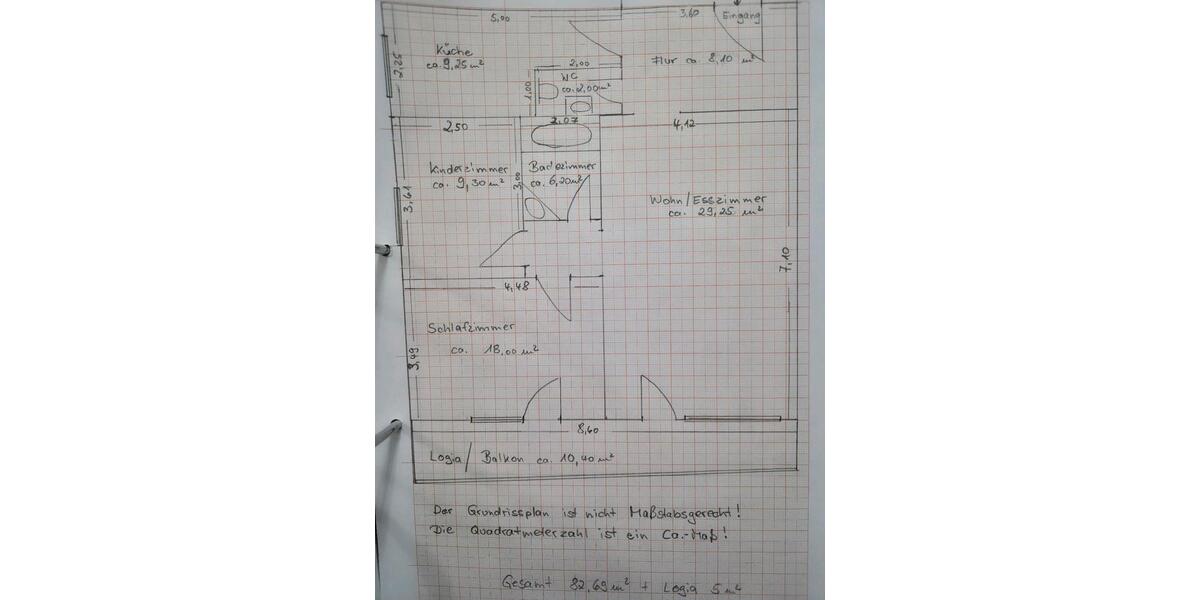 5,00
3,60
Eingang
Küche
ca. 9,25 m²
2,25
Flur ca. 8,10 m²
2,00
WC
ca. 2,00 m²
1,00
2,07
2,50
4,12
Kinderzimmer
ca. 9,30 m²
3,61
Badezimmer
ca. 6,20 m²
3,00
Wohn/Esszimmer
ca. 29,25 m²
7,10
4,48
Schlafzimmer
ca. 18,00 m²
3,49
8,60
Logia/ Balkon ca. 10,40 m²
Der Grundrissplan ist nicht Maßstabsgerecht!
Die Quadratmeterzahl ist ein Ca.-Maß!
Gesamt 82,69 m² + Logia 5 m²